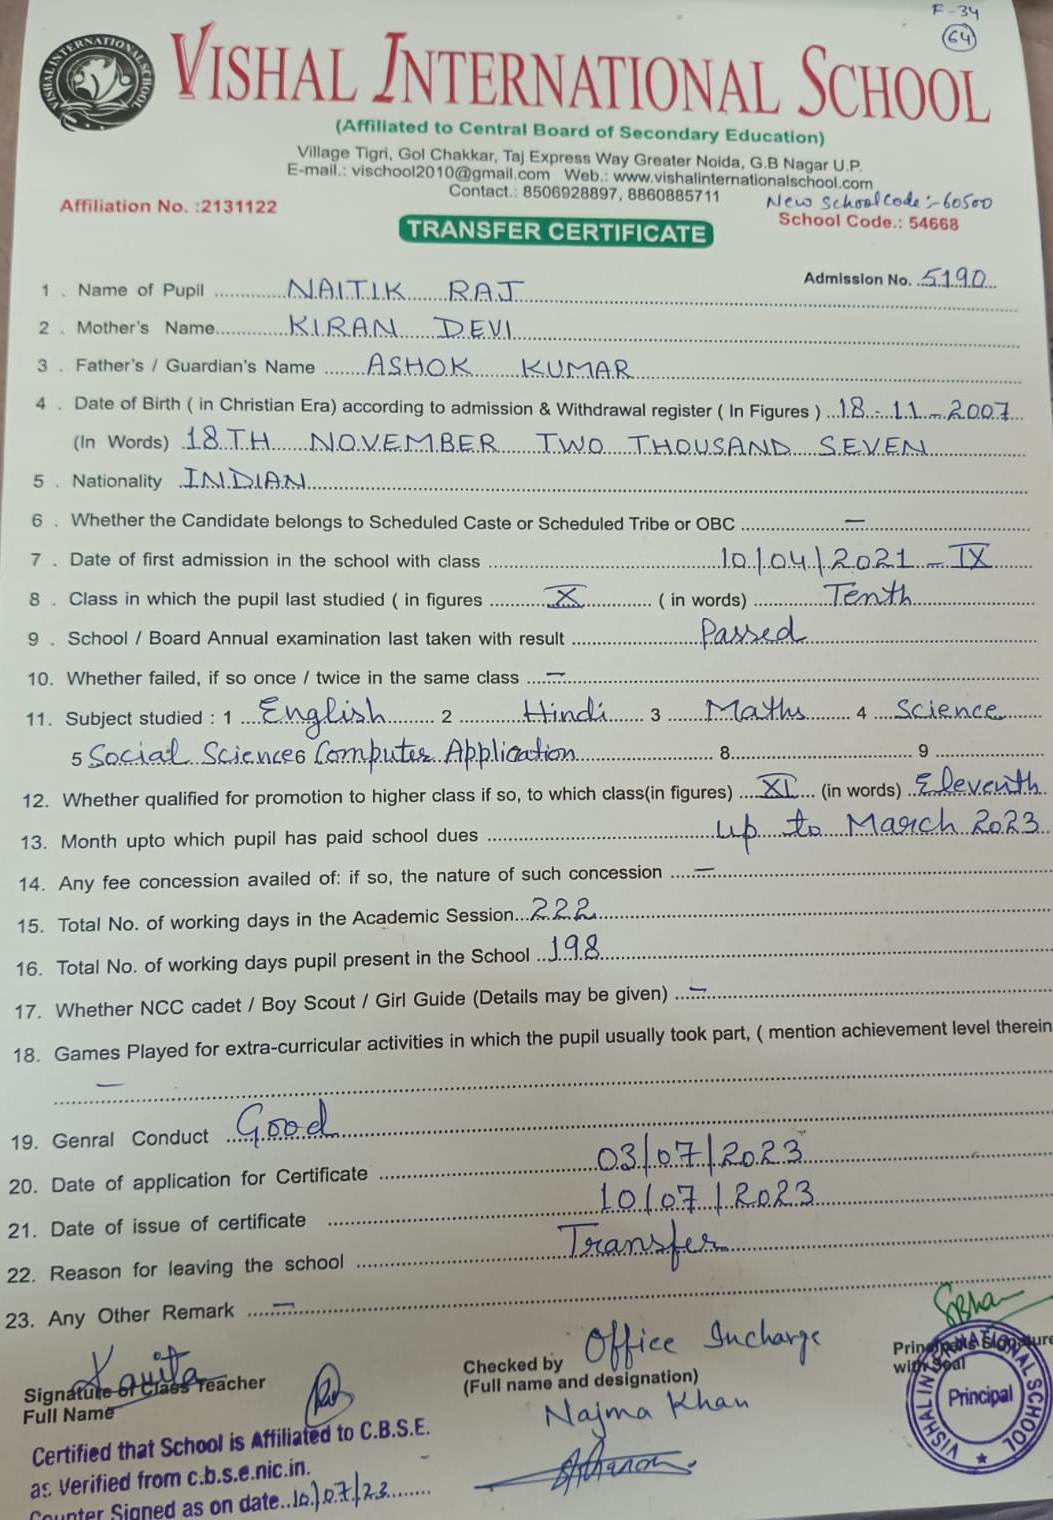 F-34
64
VISHAL INTERNATIONAL SCHOOL
VISHAL INTERNATIONAL SCHOOL
(Affiliated to Central Board of Secondary Education)
Village Tigri, Gol Chakkar, Taj Express Way Greater Noida, G.B Nagar U.P.
E-mail.: vischool2010@gmail.com Web.: www.vishalinternationalschool.com
Contact.: 8506928897, 8860885711
New School Code :- 60500
Affiliation No. :2131122
School Code.: 54668
TRANSFER CERTIFICATE
Admission No. 5190
1 . Name of Pupil NAITIK RAJ
2 . Mother's Name KIRAN DEVI
3 . Father's / Guardian's Name ASHOK KUMAR
4 . Date of Birth ( in Christian Era) according to admission & Withdrawal register ( In Figures ) 18-11-2007
(In Words) 18TH NOVEMBER TWO THOUSAND SEVEN
5 . Nationality INDIAN
6 . Whether the Candidate belongs to Scheduled Caste or Scheduled Tribe or OBC —
7 . Date of first admission in the school with class 10/04/2021 - IX
8 . Class in which the pupil last studied ( in figures X ( in words) Tenth
9 . School / Board Annual examination last taken with result Passed
10. Whether failed, if so once / twice in the same class —
11. Subject studied : 1 English 2 Hindi 3 Maths 4 Science
5 Social Science 6 Computer Application 8 9
12. Whether qualified for promotion to higher class if so, to which class(in figures) XI (in words) Eleventh
13. Month upto which pupil has paid school dues up to March 2023
14. Any fee concession availed of: if so, the nature of such concession —
15. Total No. of working days in the Academic Session 222
16. Total No. of working days pupil present in the School 198
17. Whether NCC cadet / Boy Scout / Girl Guide (Details may be given) —
18. Games Played for extra-curricular activities in which the pupil usually took part, ( mention achievement level therein
—
19. Genral Conduct Good
20. Date of application for Certificate 03/07/2023
21. Date of issue of certificate 10/07/2023
22. Reason for leaving the school Transfer
23. Any Other Remark —
Kavita
Signature of Class Teacher
Full Name
Checked by Office Incharge
(Full name and designation)
Najma Khan
Principal's Signature
with Seal
VISHAL INTERNATIONAL SCHOOL
Principal
Certified that School is Affiliated to C.B.S.E.
as Verified from c.b.s.e.nic.in.
Counter Signed as on date 10/07/23